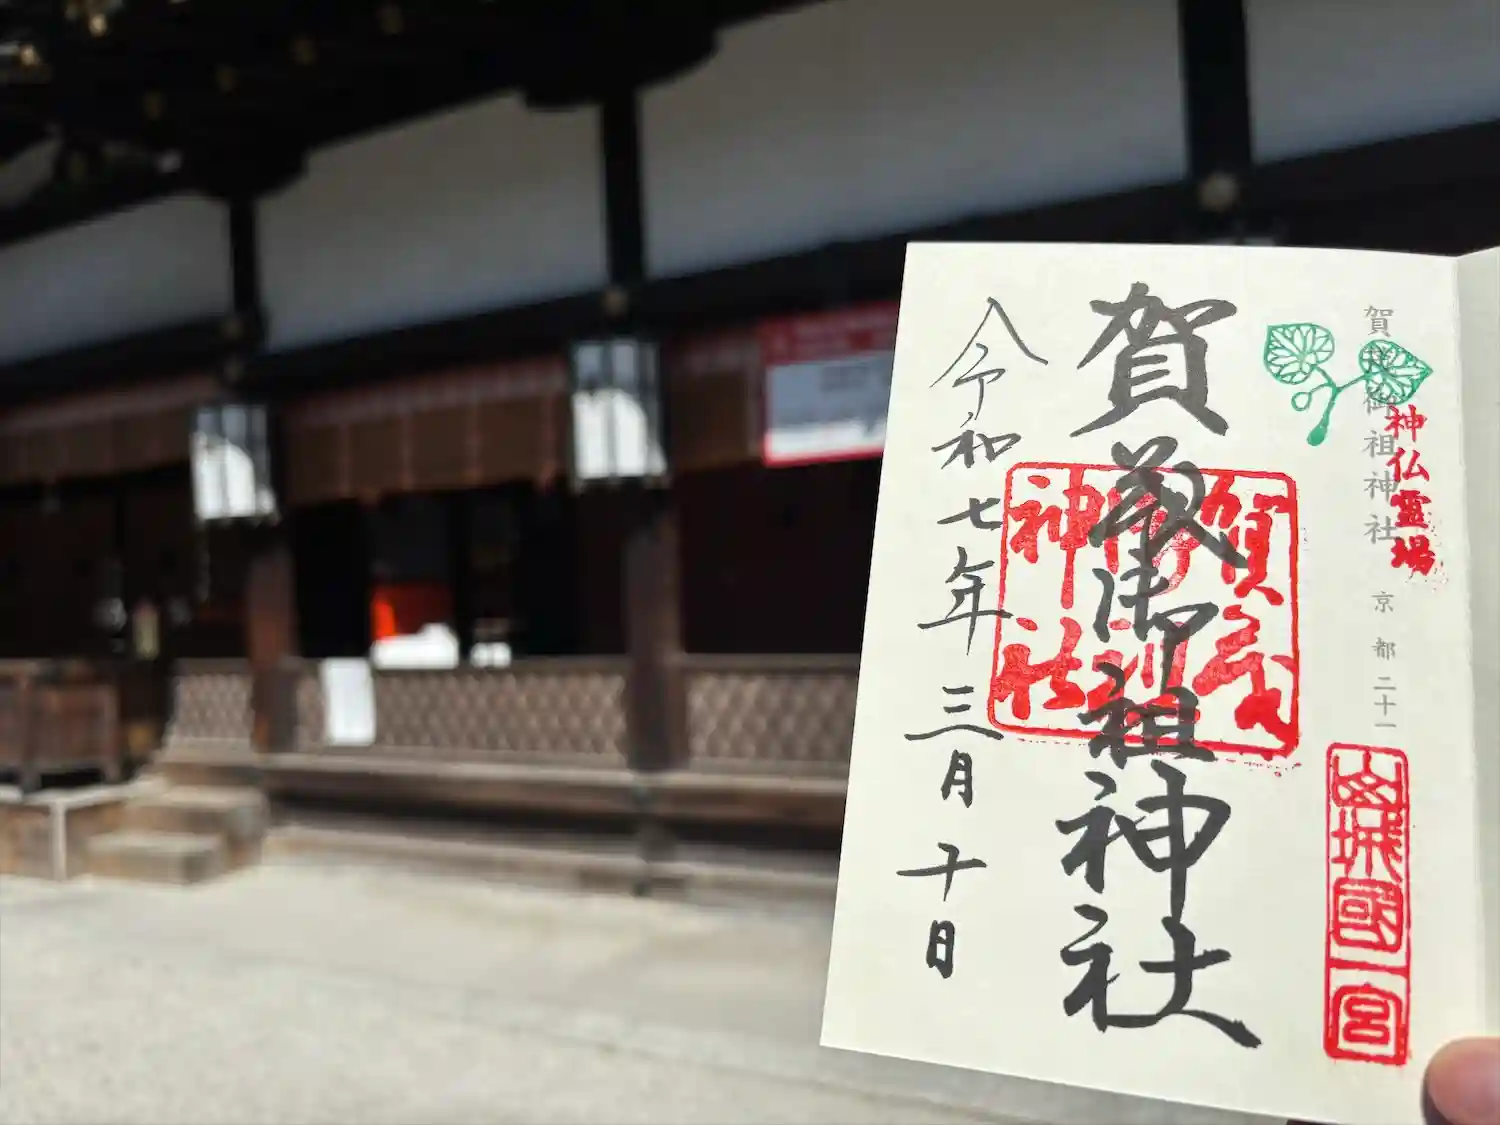 賀茂御祖神社 京都 二十一
神仏霊場
山城國一宮
賀茂御祖神社
賀茂御祖神社
令和七年三月十日